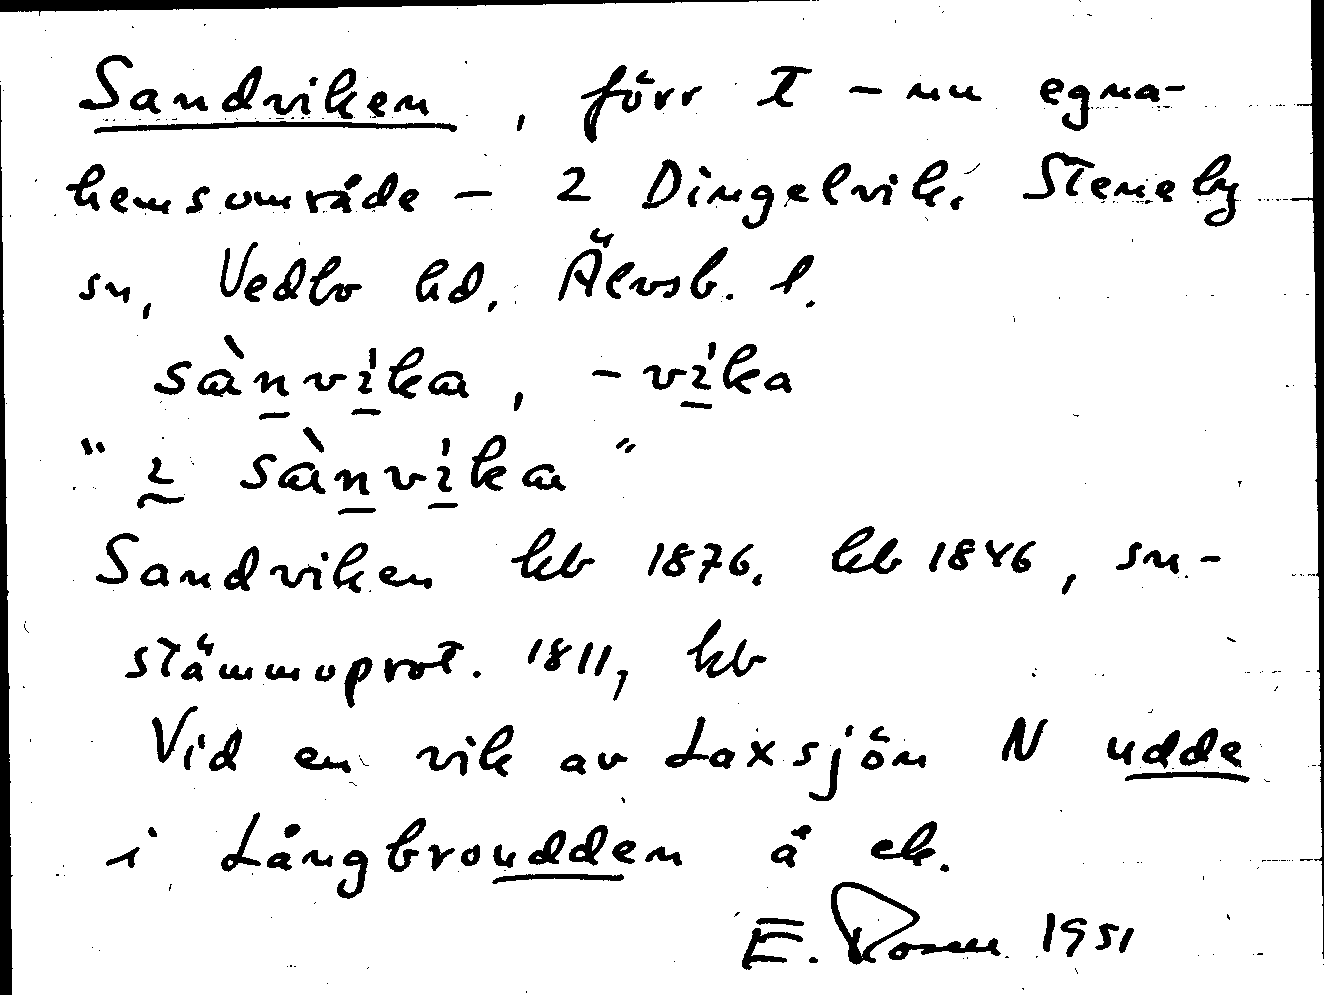 Sandviken, förr T - nu egna-
hemsområde - 2 Dingelvik. Steneby
sn, Vedbo hd. Älvsb. l.
sànvíka, -víka
"i sànvíka"
Sandviken kb 1876. kb 1846, sn-
stämmoprot. 1811, kb
Vid en vik av Laxsjön N udde
i Långbroudden å ek.
E. Rosell 1951